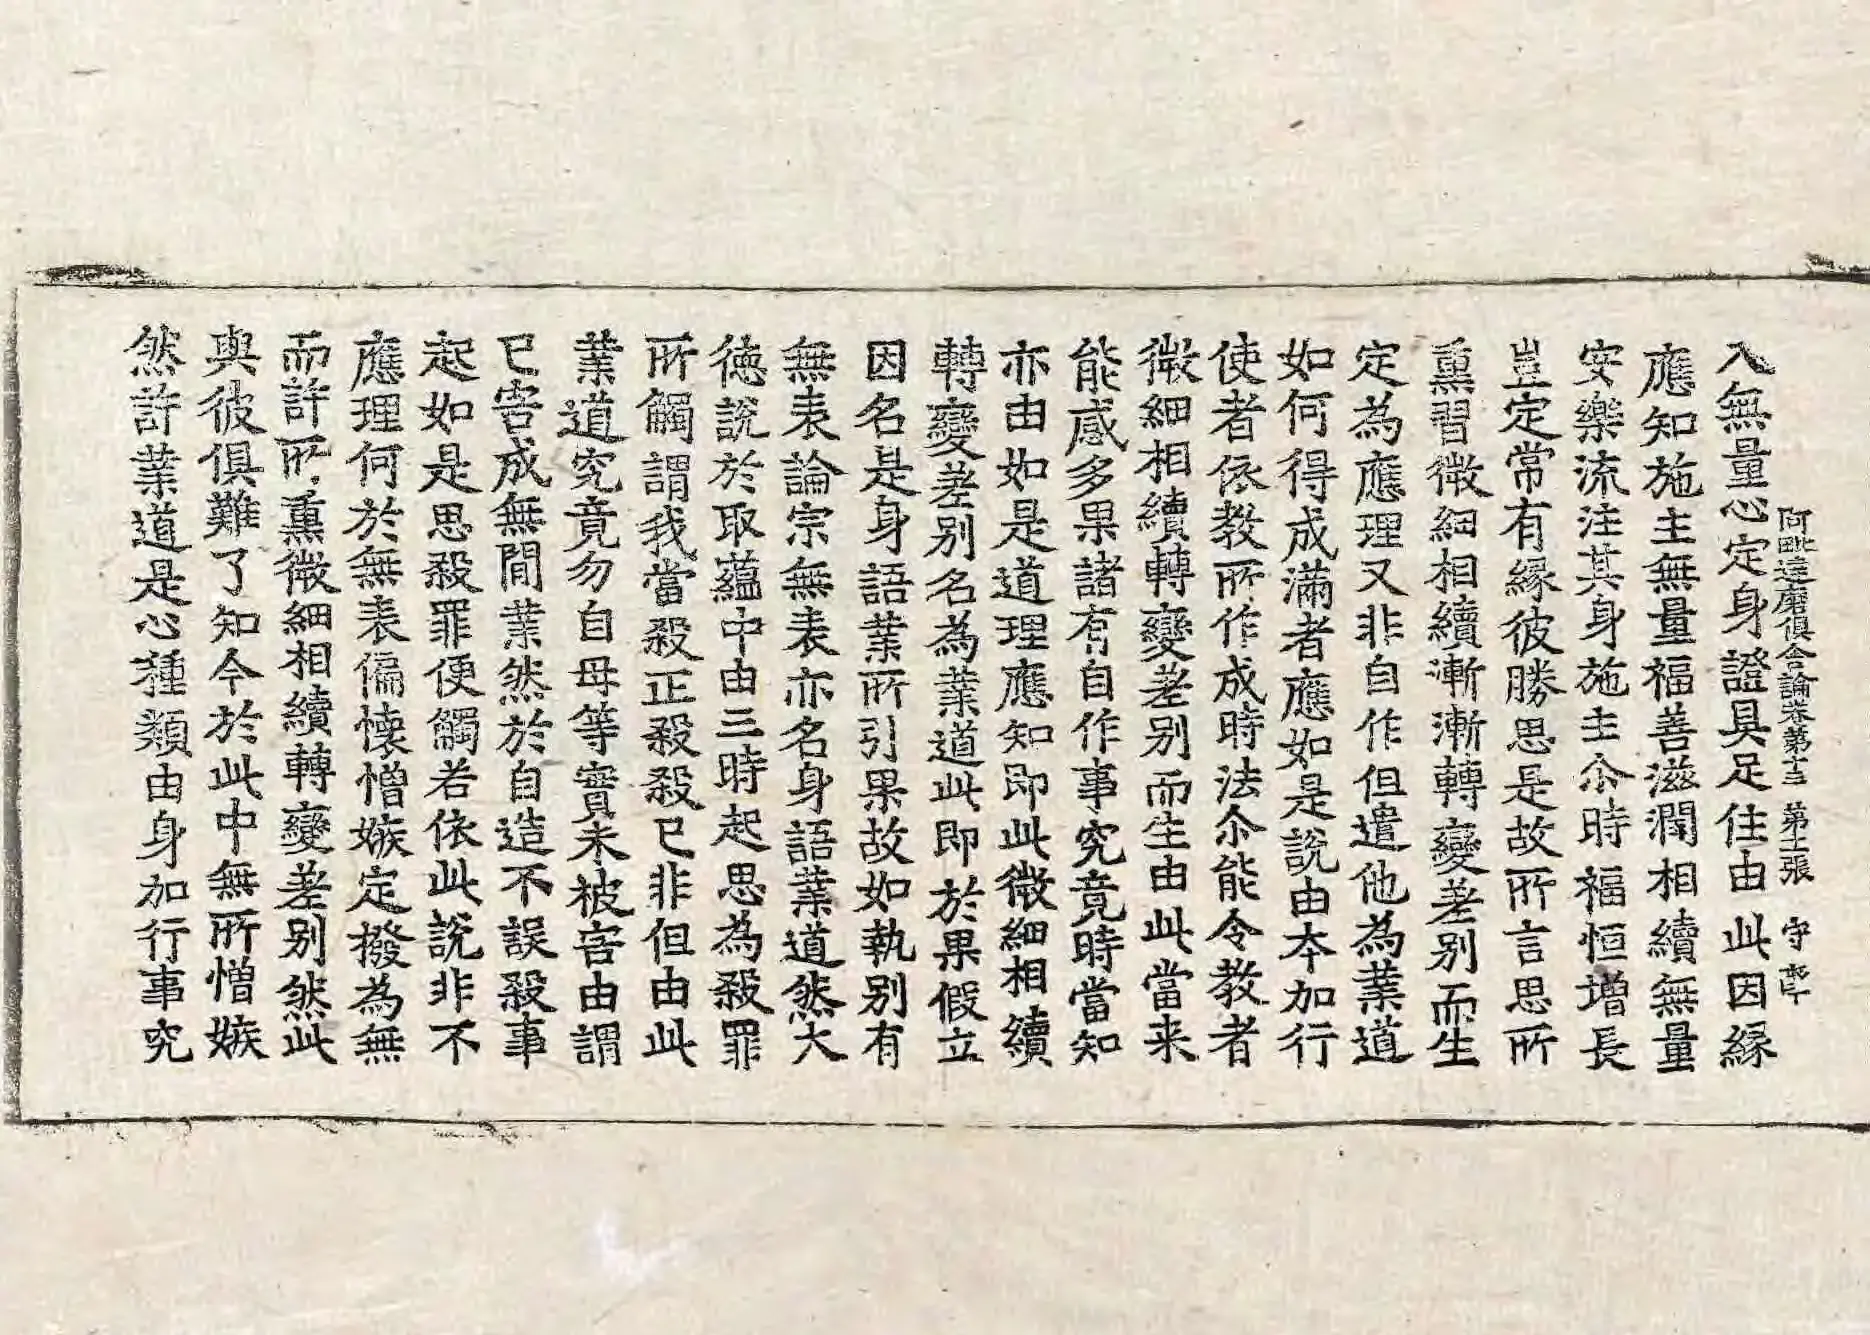 阿毗達磨俱舍論卷第十三 第十二張 守
入無量心定身證具足住由此因緣
應知施主無量福善滋潤相續無量
安樂流注其身施主尒時福恒增長
豈定常有緣彼勝思是故所言思所
熏習微細相續漸漸轉變差別而生
定為應理又非自作但遣他為業道
如何得成滿者應如是說由本加行
使者依教所作成時法尒能令教者
微細相續轉變差別而生由此當来
能感多果諸有自作事究竟時當知
亦由如是道理應知即此微細相續
轉變差別名為業道此即於果假立
因名是身語業所引果故如執別有
無表論宗無表亦名身語業道然大
德說於取蘊中由三時起思為殺罪
所觸謂我當殺正殺殺已非但由此
業道究竟勿自母等實未被害由謂
已害成無間業然於自造不誤殺事
起如是思殺罪便觸若依此說非不
應理何於無表偏懷憎嫉定撥為無
而許所熏微細相續轉變差別然此
與彼俱難了知今於此中無所憎嫉
然許業道是心種類由身加行事究